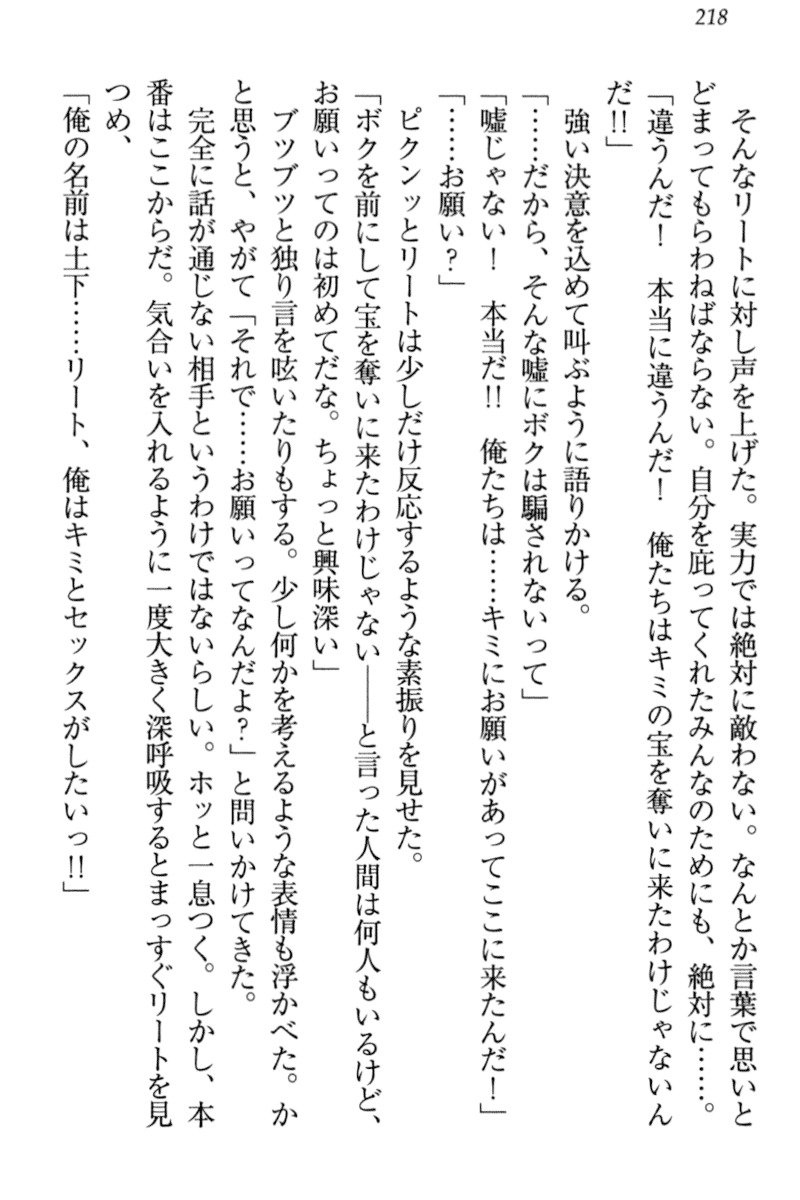 218
そんなリートに対し声を上げた。実力では絶対に敵わない。なんとか言葉で思いと
どまってもらわねばならない。自分を庇ってくれたみんなのためにも、絶対に……。
「違うんだ！　本当に違うんだ！　俺たちはキミの宝を奪いに来たわけじゃないん
だ!!」
強い決意を込めて叫ぶように語りかける。
「……だから、そんな嘘にボクは騙されないって」
「嘘じゃない！　本当だ!!　俺たちは……キミにお願いがあってここに来たんだ！」
「……お願い？」
ピクンッとリートは少しだけ反応するような素振りを見せた。
「ボクを前にして宝を奪いに来たわけじゃない――と言った人間は何人もいるけど、
お願いってのは初めてだな。ちょっと興味深い」
ブツブツと独り言を呟いたりもする。少し何かを考えるような表情も浮かべた。か
と思うと、やがて「それで……お願いってなんだよ？」と問いかけてきた。
完全に話が通じない相手というわけではないらしい。ホッと一息つく。しかし、本
番はここからだ。気合いを入れるように一度大きく深呼吸するとまっすぐリートを見
つめ、
「俺の名前は土下……リート、俺はキミとセックスがしたいっ!!」